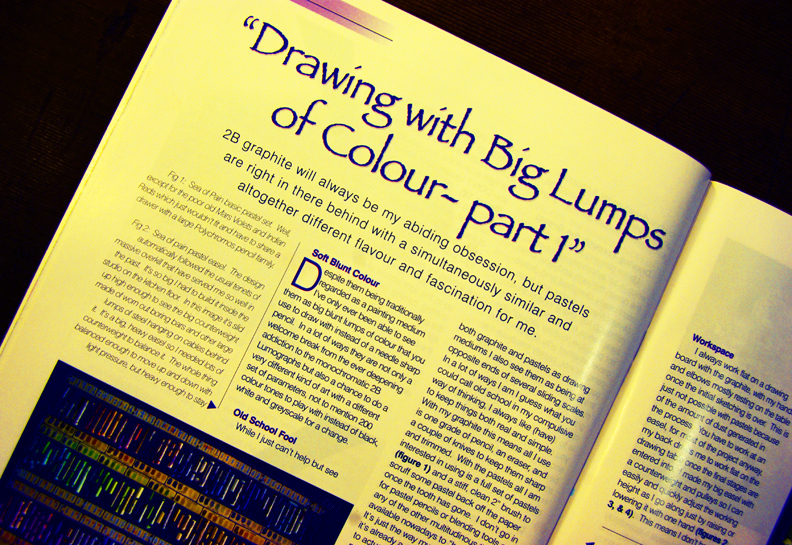 "Drawing with Big Lumps
of Colour- part 1"
2B graphite will always be my abiding obsession, but pastels
are right in there behind with a simultaneously similar and
altogether different flavour and fascination for me.
Fig 1: Sea of Pain basic pastel set. Well,
except for the poor old Mars Violets and Indian
Reds which just wouldn't fit and have to share a
drawer with a large Polychromos pencil family.
Fig 2: Sea of pain pastel easel. The design
automatically followed the usual tenets of
massive overkill that have served me so well in
the past. It's so big I had to build it inside the
studio on the kitchen floor. In this image it's slid
up high enough to see the big counterweight
made of worn out boring bars and other large
lumps of steel hanging on cables behind
it. It's a big, heavy easel so I needed lots of
counterweight to balance it. The whole thing
balanced enough to move up and down with
light pressure, but heavy enough to stay
Soft Blunt Colour
Despite them being traditionally
regarded as a painting medium
I've only ever been able to see
them as big blunt lumps of colour that you
use to draw with instead of a needle sharp
pencil. In a lot of ways they are not only a
welcome break from the ever deepening
addiction to the monochromatic 2B
Lumographs but also a chance to do a
very different kind of art with a different
set of parameters, not to mention 200
colour tones to play with instead of black,
white and greyscale for a change.
Old School Fool
While I just can't help but see
both graphite and pastels as drawing
mediums I also see them as being at
opposite ends of several sliding scales.
In a lot of ways I am I guess what you
could call old school in my compulsive
way of thinking. I always like (have)
to keep things both real and simple.
With my graphite this means all I use
is one grade of pencil, an eraser, and
a couple of knives to keep them sharp
and trimmed. With the pastels all I am
interested in using is a full set of pastels
(figure 1) and a stiff, clean 2" brush to
scruff some pastel back off the paper
once the tooth has gone. I don't go in
for pastel pencils or blending tools
any of the other multitudinous
available nowadays to
It's just the way
it's already
to
Workspace
I always work flat on a drawing
board with the graphite with my hand
and elbows mostly resting on the table
once the initial sketching is over. This is
just not possible with pastels because
of the amount of dust generated in
the process. You have to work at an
easel, for most of the project anyway.
my back
drawing table once the final stages are
entered into. I made my big easel with
a counterweight and pulleys so I can
easily and quickly adjust the working
height as I go along just by raising or
lowering it with one hand (figures 2,
3, & 4). This means I don't